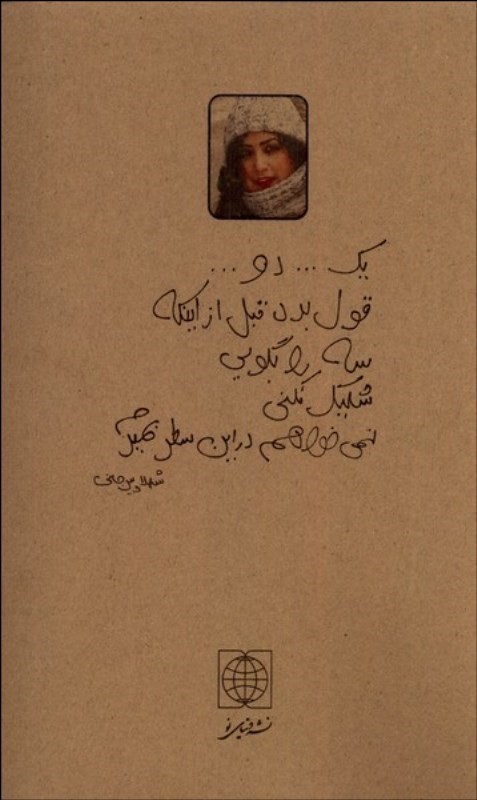 یک ... دو ...
قول بده قبل از اینکه
سه را بگویی
شلیک نکنی
نمی خواهم در این سطر بمیرم
نشر دنیای نو